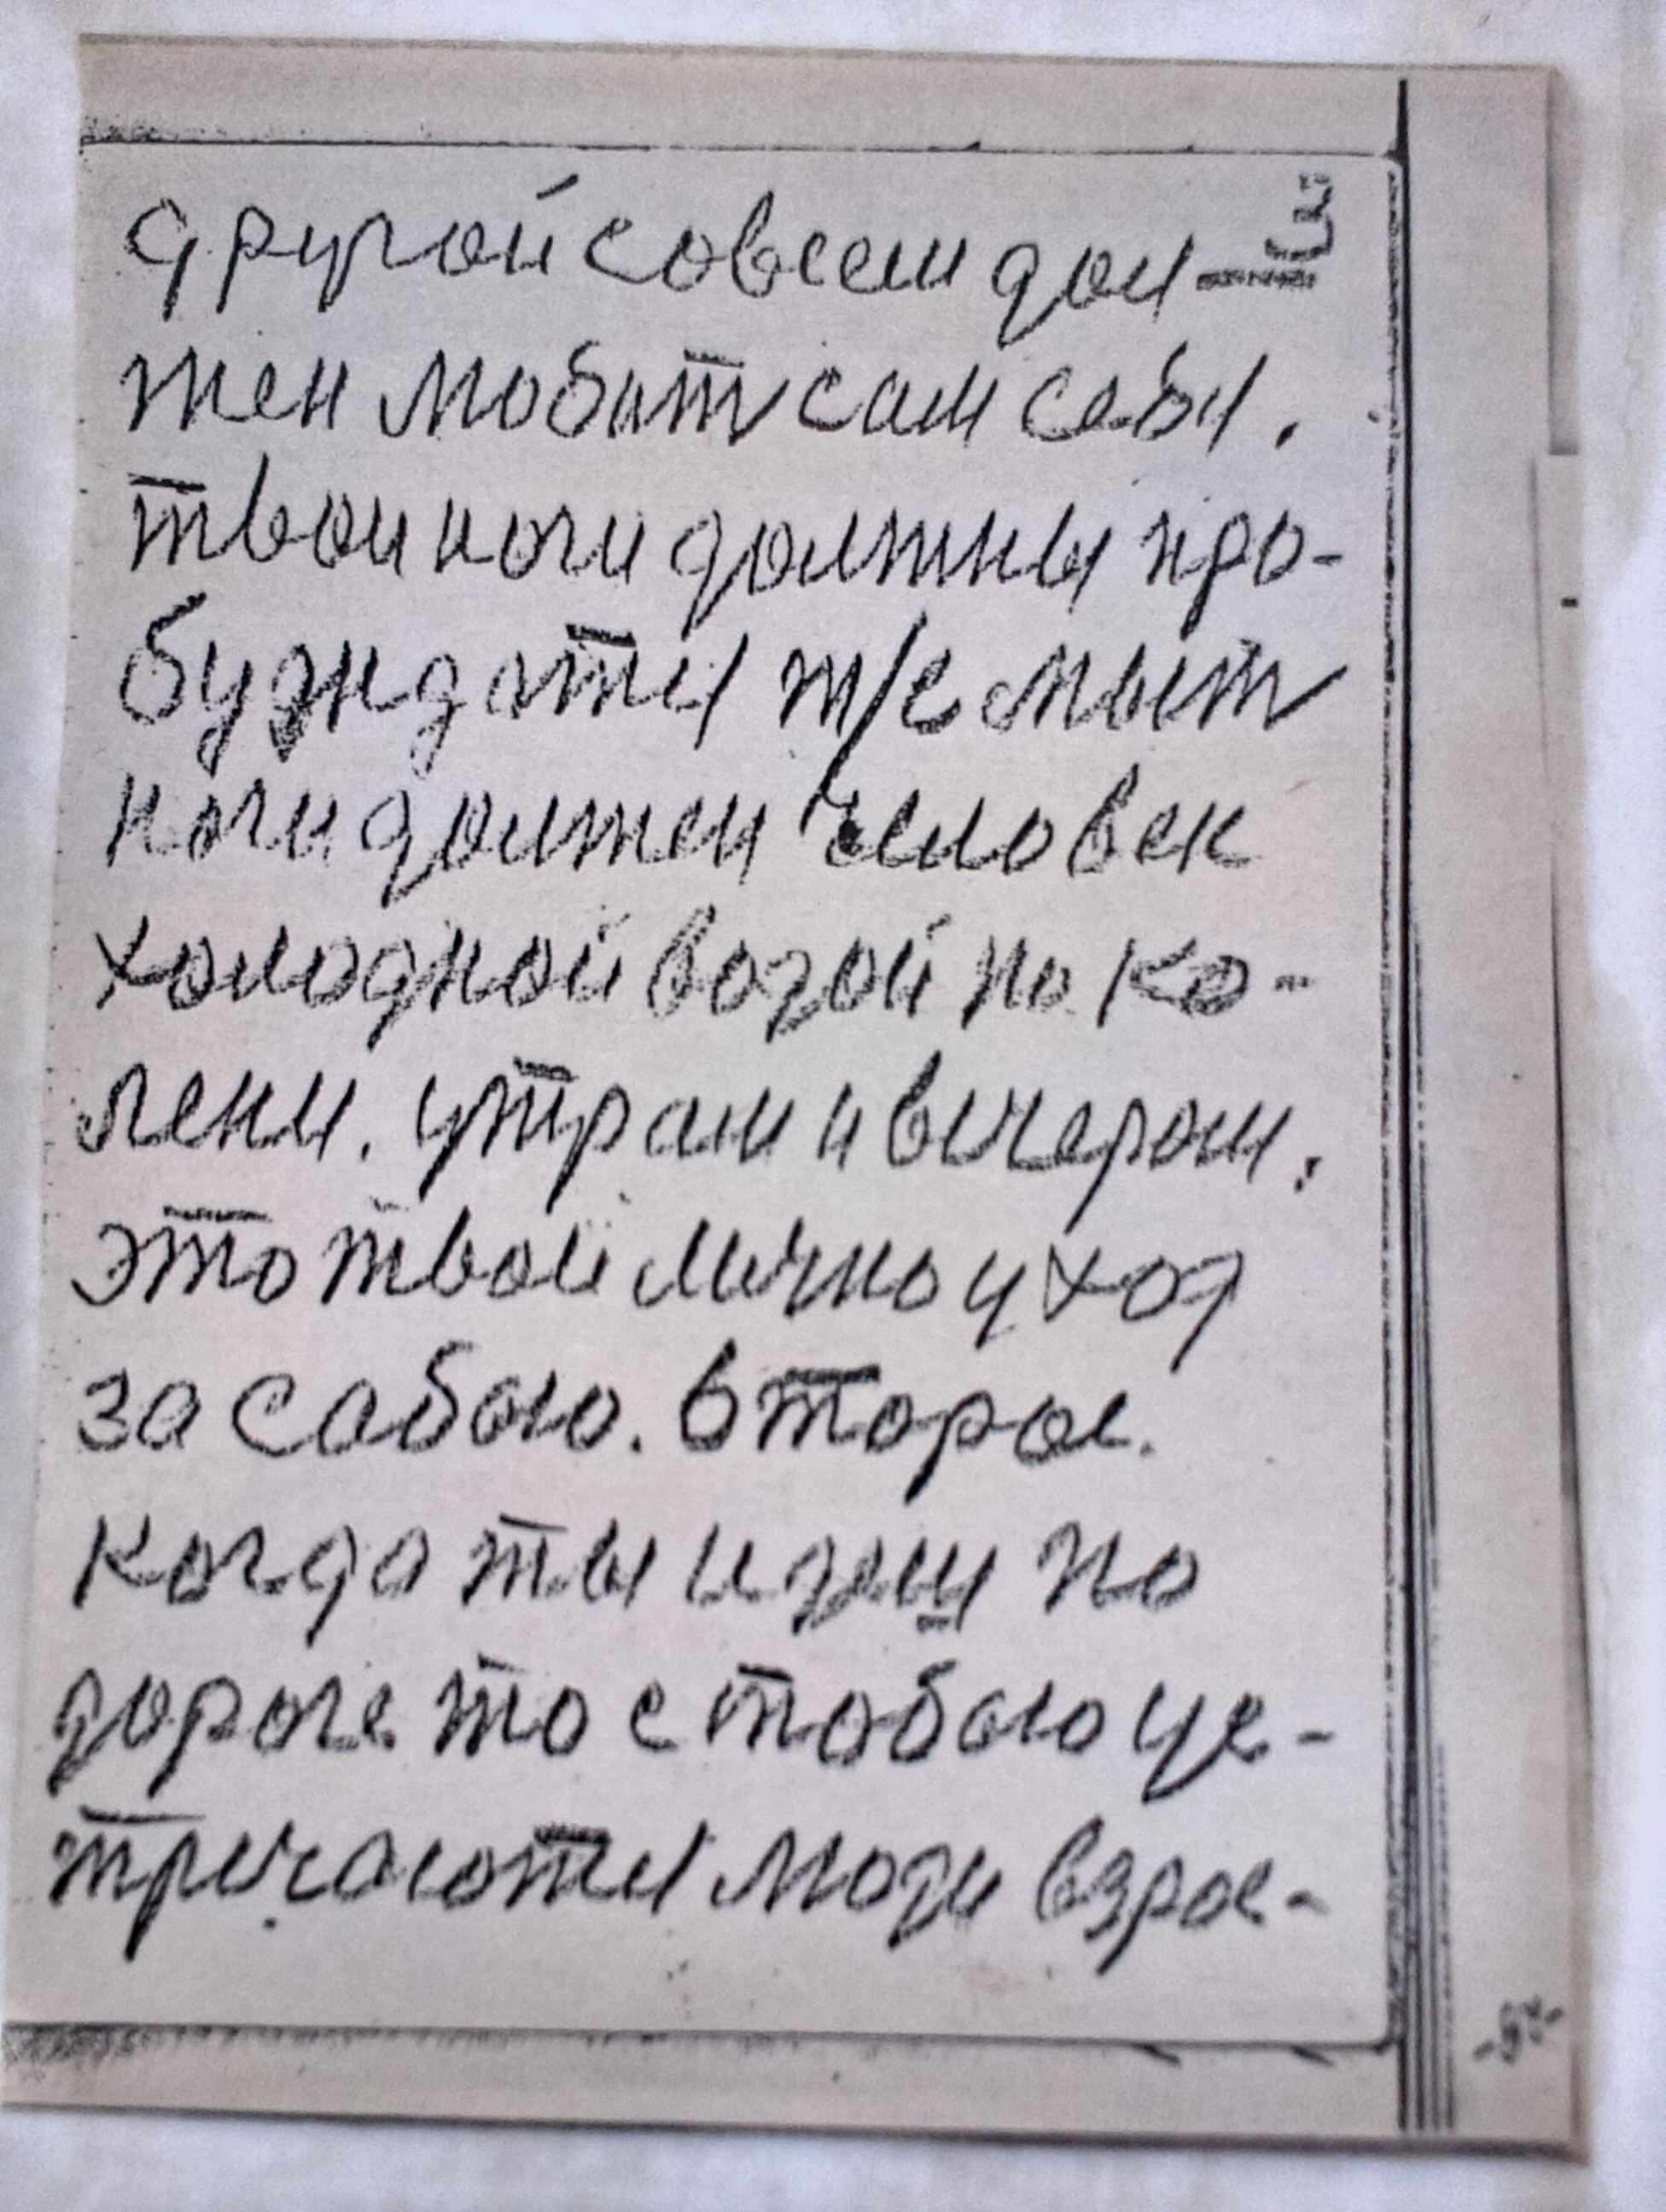 3
другой совсем дол-
жен любит сам себя.
твои ноги должны про-
буждатся т/е мыт
ноги должен человек
холодной водой по ко-
лени. утрам и вичером.
это твой лично уход
за сабою. второе.
когда ты идеш по
дороге то с тобою це-
тричаются люди взрос-